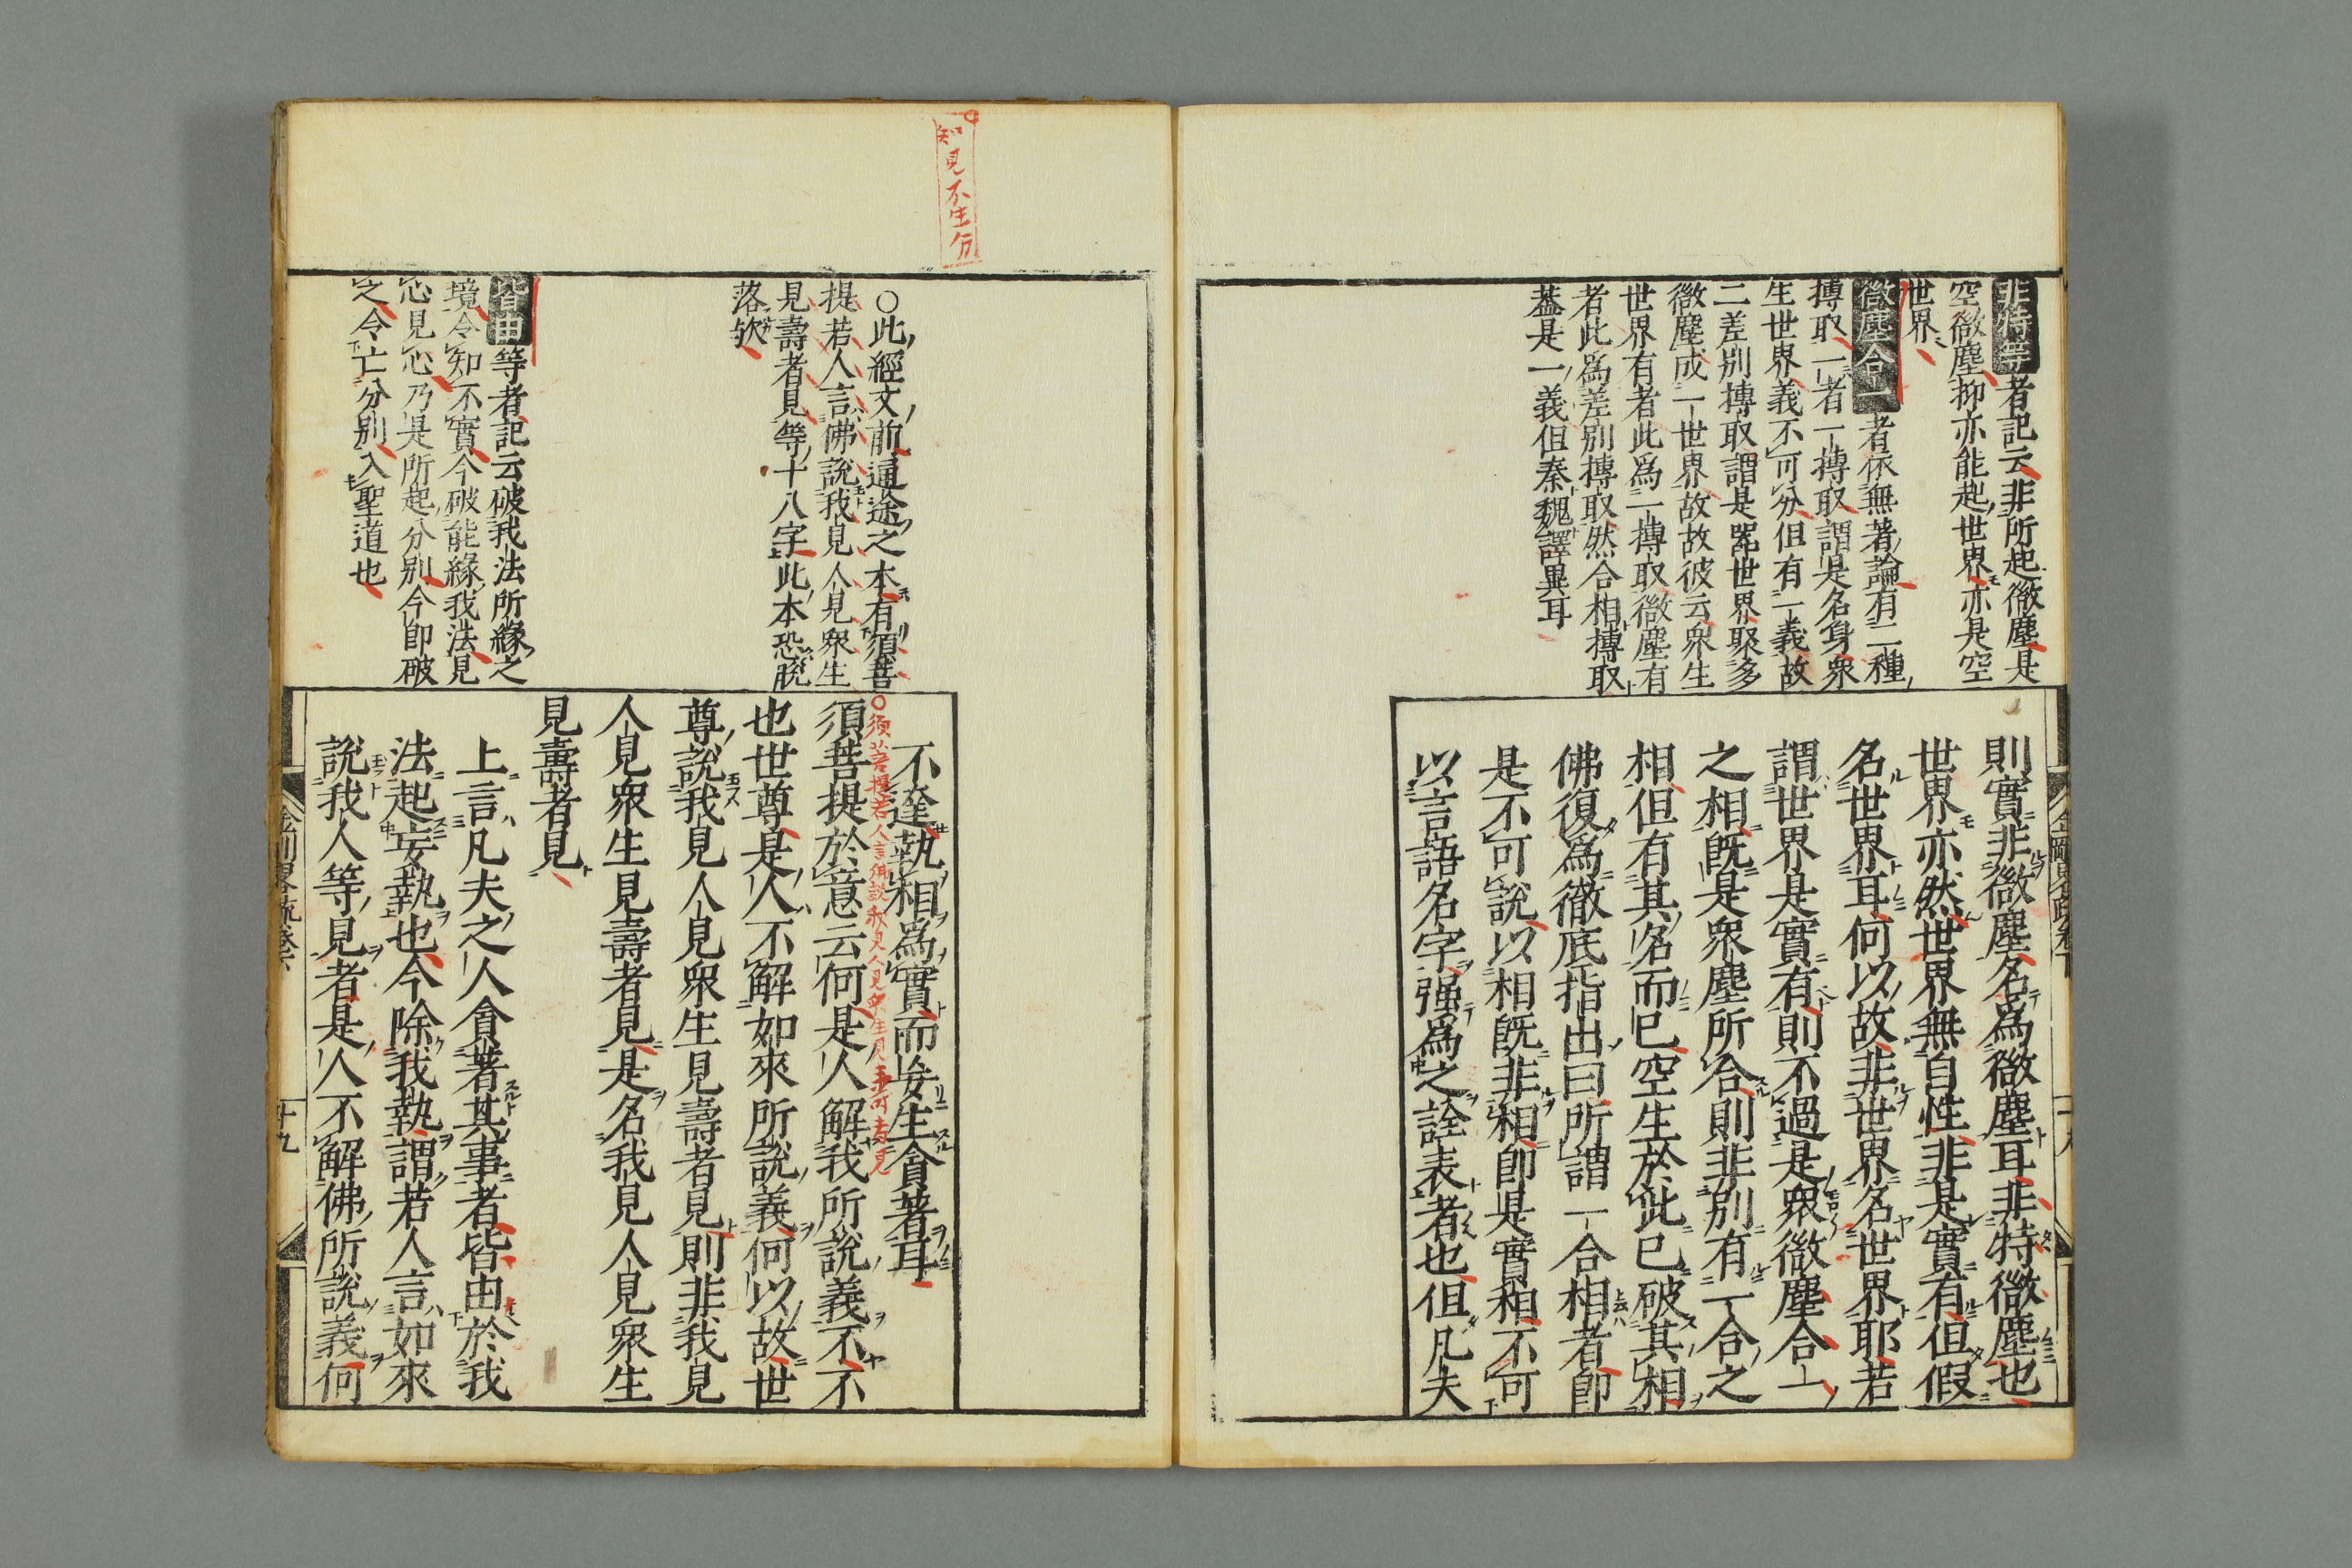 非特等者記云非所起微塵是
空微塵抑亦能起世界亦是空
世界
微塵合一者依無著論有二種
搏取一者一搏取謂是名身衆
生世界義不可分但有一義故
二差別搏取謂是器世界聚多
微塵成一世界故故彼云衆生
世界有者此爲一搏取微塵有
者此爲差別搏取然合相搏取
葢是一義但秦魏譯異耳
則實非微塵名爲微塵耳非特微塵也
世界亦然世界無自性非是實有但假
名世界耳何以故非世界名世界耶若
謂世界是實有則不過是衆微塵合一
之相既是衆塵所合則非別有一合之
相但有其名而已空生於此已破其相
佛復爲徹底指出曰所謂一合相者即
是不可說以相既非相即是實相不可
以言語名字强爲之詮表者也但凡夫
知見不生分
〇此經文前通途之本有須菩
提若人言佛說我見人見衆生
見壽者見等十八字此本恐脫
落欤
皆由等者記云破我法所緣之
境令知不實今破能緣我法見
心見心乃是所起分別今即破
之令亡分別入聖道也
不達執相爲實而妄生貪著耳
〇須菩提若人言佛說我見人見衆生見壽者見
須菩提於意云何是人解我所說義不不
也世尊是人不解如來所說義何以故世
尊說我見人見衆生見壽者見則非我見
人見衆生見壽者見是名我見人見衆生
見壽者見
上言凡夫之人貪著其事者皆由於我
法起妄執也今除我執謂若人言如來
說我人等見者是人不解佛所說義何
十九